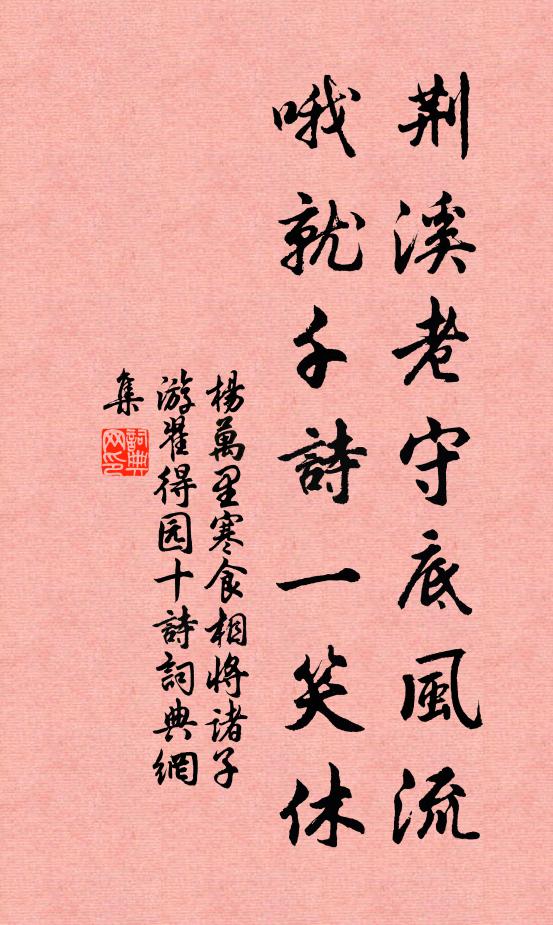 荆溪老守底風流
哦就千詩一笑休
楊萬里寒食相將諸子
游翟得园十詩詞典網
集
詞典網印